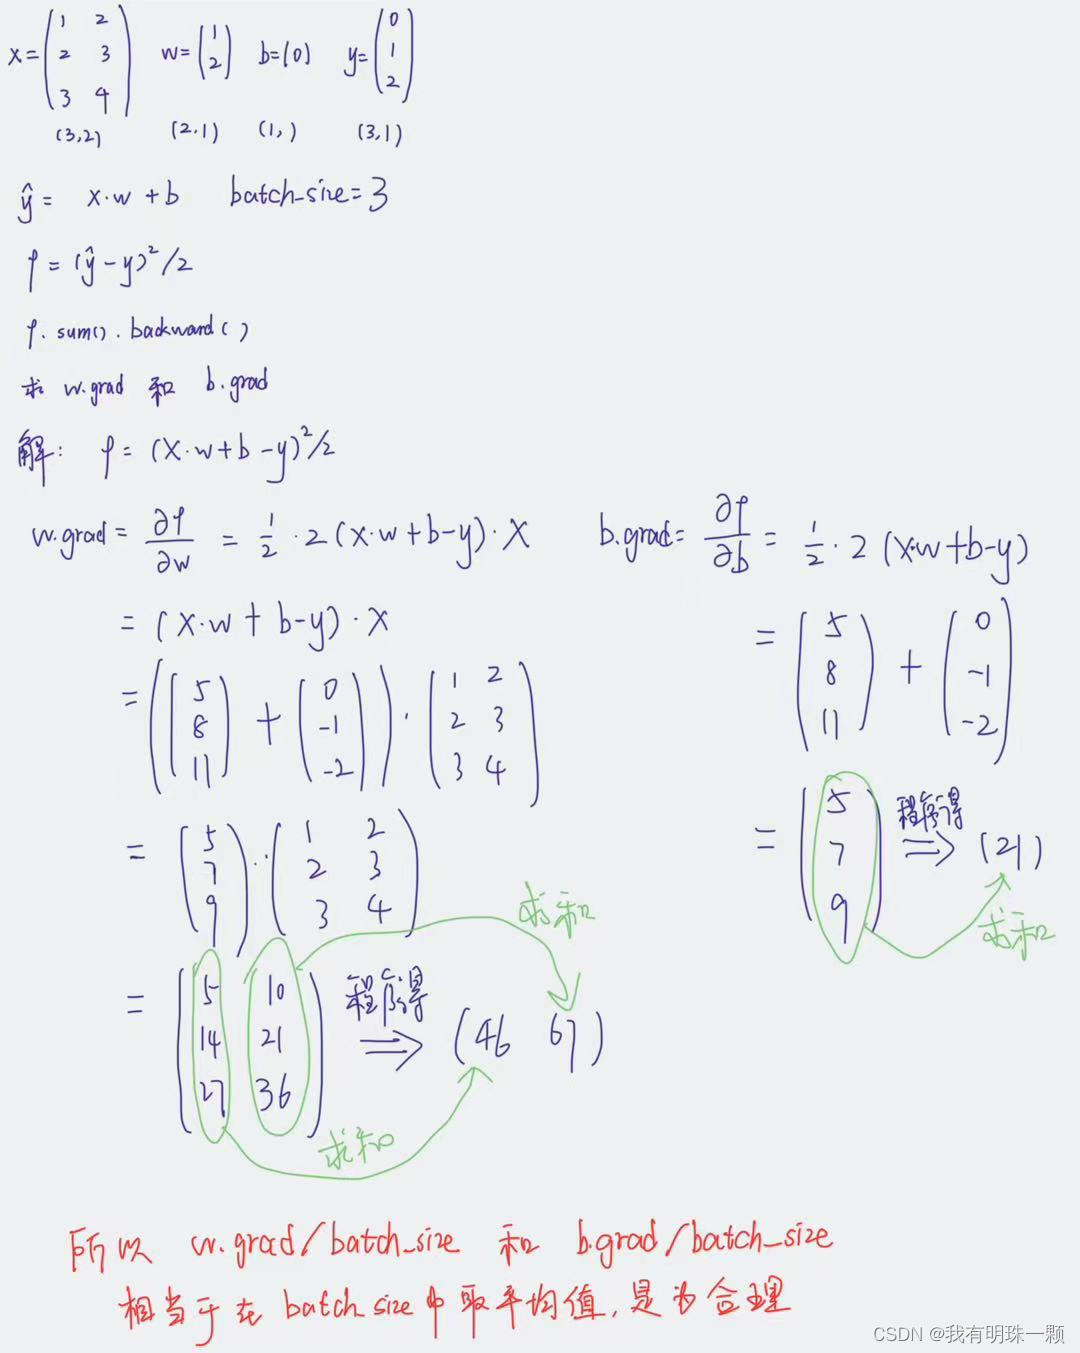 x=(1 2 2 3 3 4) w=(1 2) b=(0) y=(0 1 2)
(3,2) (2,1) (1,) (3,1)
ŷ= x·w+b batch_size=3
ρ=(ŷ-y)²/2
ρ.sum().backward()
求 w.grad 和 b.grad
解: ρ=(X·w+b-y)²/2
w.grad=∂ρ/∂w=1/2·2(x·w+b-y)·X
=(x·w+b-y)·X
=((5 8 11)+(0 -1 -2))·(1 2 2 3 3 4)
=(5 7 9)·(1 2 2 3 3 4)
=(5 10 14 21 27 36) 程序得 ⇒ (46 67)
求和
求和
b.grad=∂ρ/∂b=1/2·2(x·w+b-y)
=(5 8 11)+(0 -1 -2)
=(5 7 9) 程序得 ⇒ (21)
求和
所以 w.grad/batch_size 和 b.grad/batch_size
相当于在 batch_size中取平均值,是为合理
CSDN @我有明珠一颗